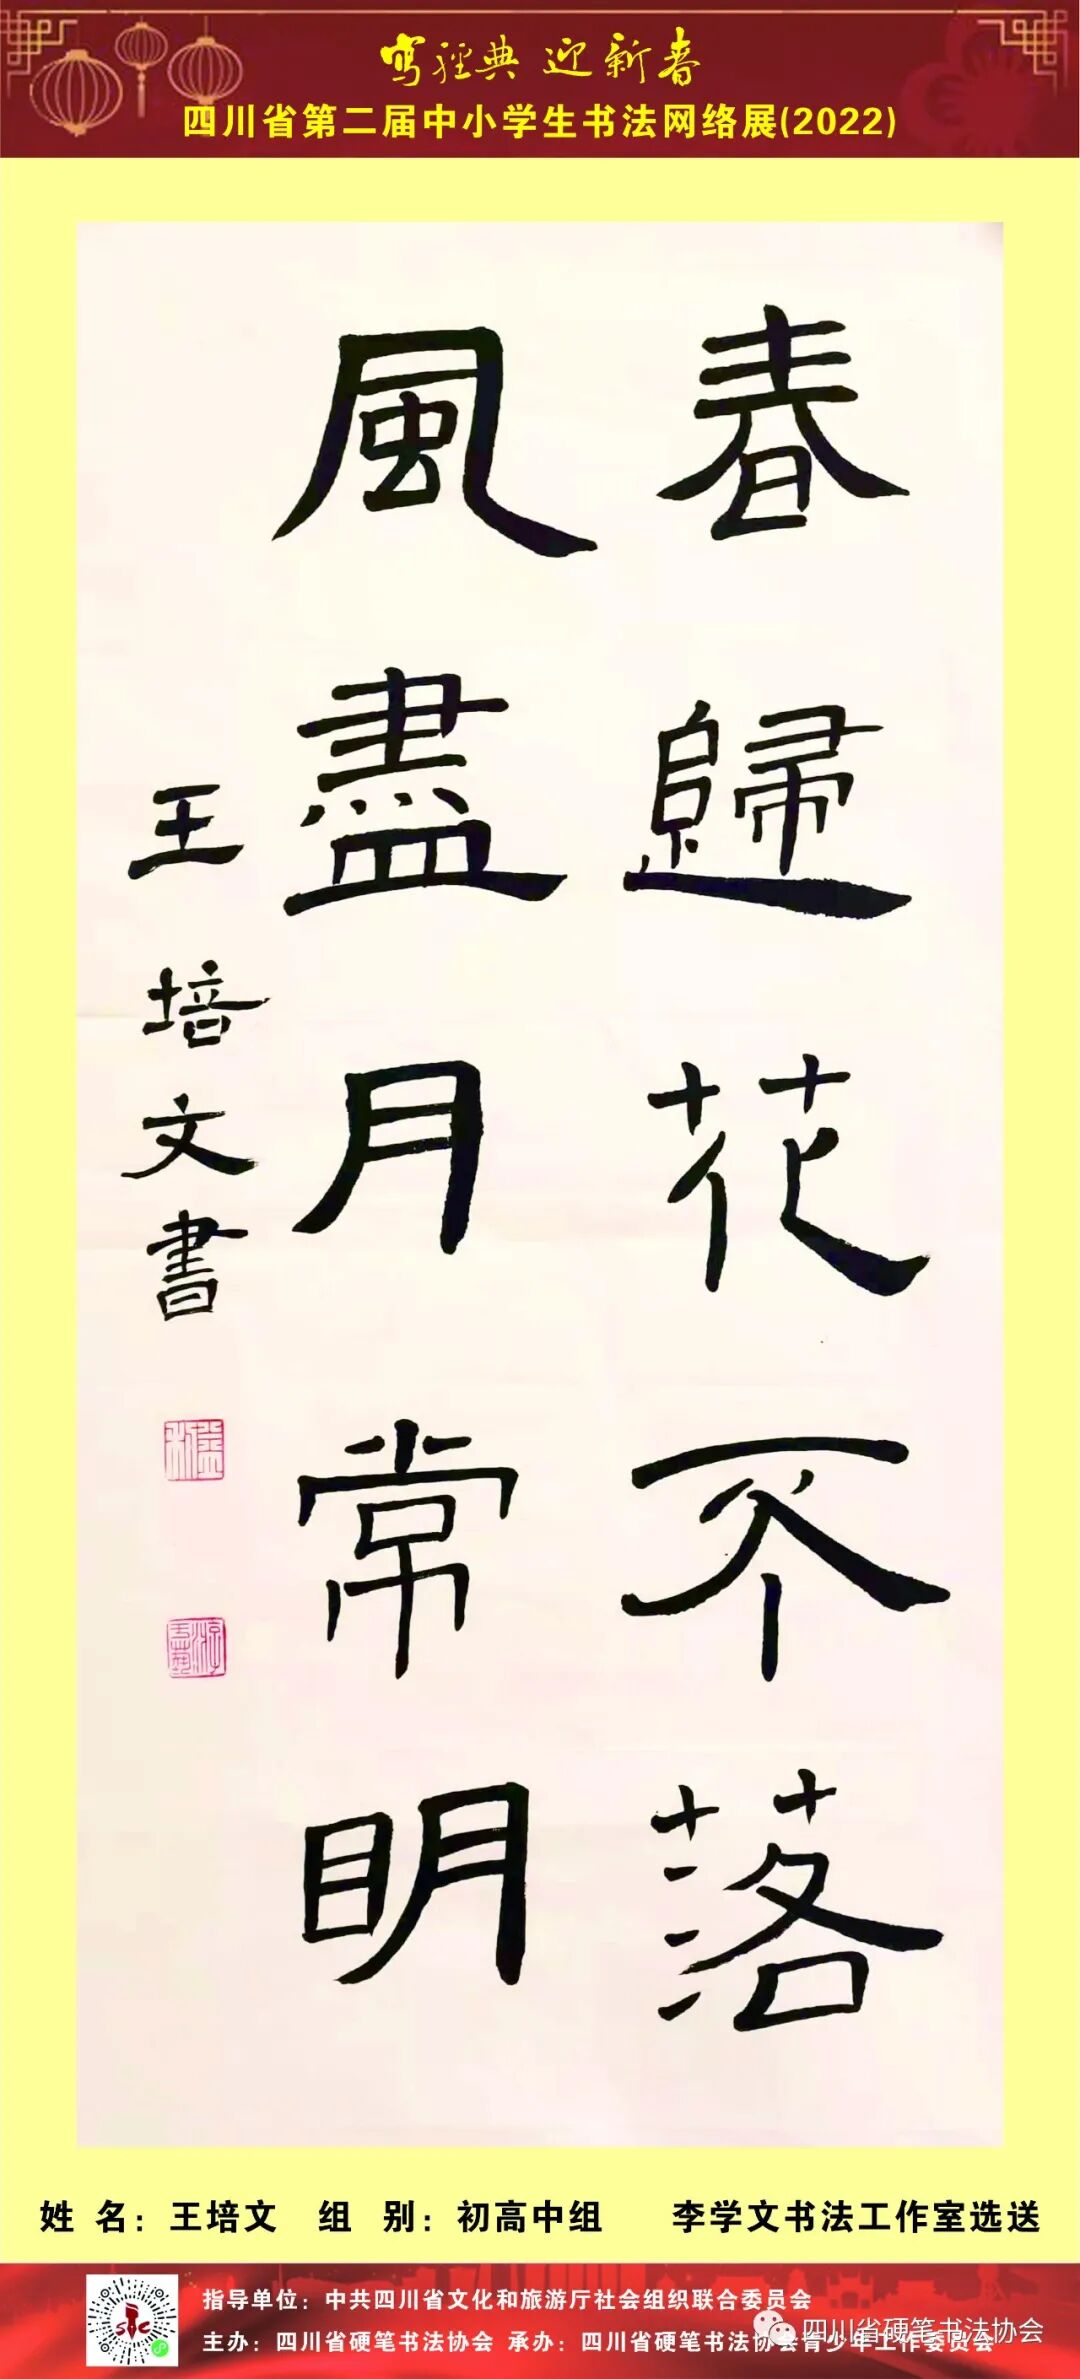 寫經典 迎新春
四川省第二届中小学生书法网络展(2022)
春歸花不落
風盡月常明
王培文書
姓 名：王培文 组 别：初高中组 李学文书法工作室选送
指导单位：中共四川省文化和旅游厅社会组织联合委员会
主办：四川省硬笔书法协会 承办：四川省硬笔书法协会青少年工作委员会
四川省硬笔书法协会